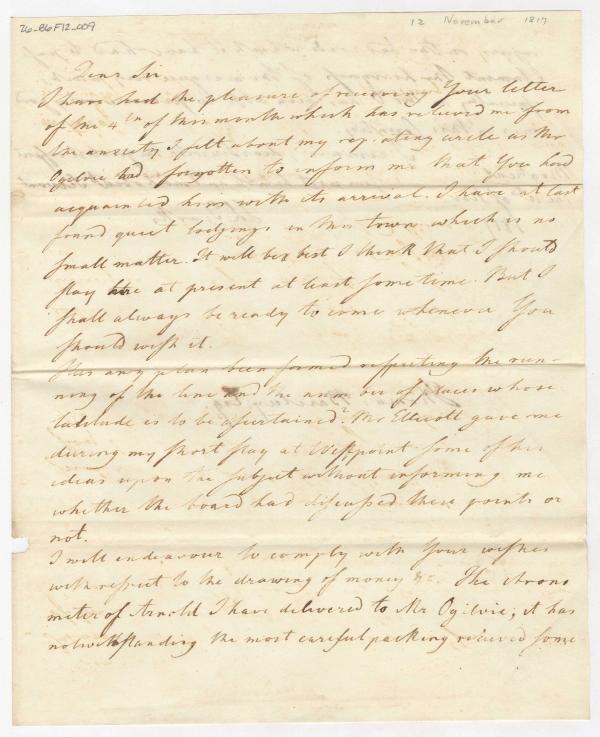 76-B6F12-009
12 November 1817
Dear Sir
I have had the pleasure of receiving Your letter
of the 4th of this month which has relieved me from
the anxiety I felt about my repeating circle as Mr
Ogilvie had forgotten to inform me that You had
acquainted him with its arrival. I have at last
found quiet lodgings in this town which is no
small matter. It will be best I think that I should
stay here at present at least some time. But I
shall always be ready to come whenever You
should wish it.
Has any plan been formed respecting the run-
ning of the line and the number of places whose
latitude is to be ascertained? Mr Ellicott gave me
during my short stay at Westpoint some of his
ideas upon the subject without informing me
whether the board had discussed these points or
not.
I will endeavour to comply with Your wishes
with respect to the drawing of money &c. The chrono
meter of Arnold I have delivered to Mr Ogilvie; it has
notwithstanding the most careful packing recieved some